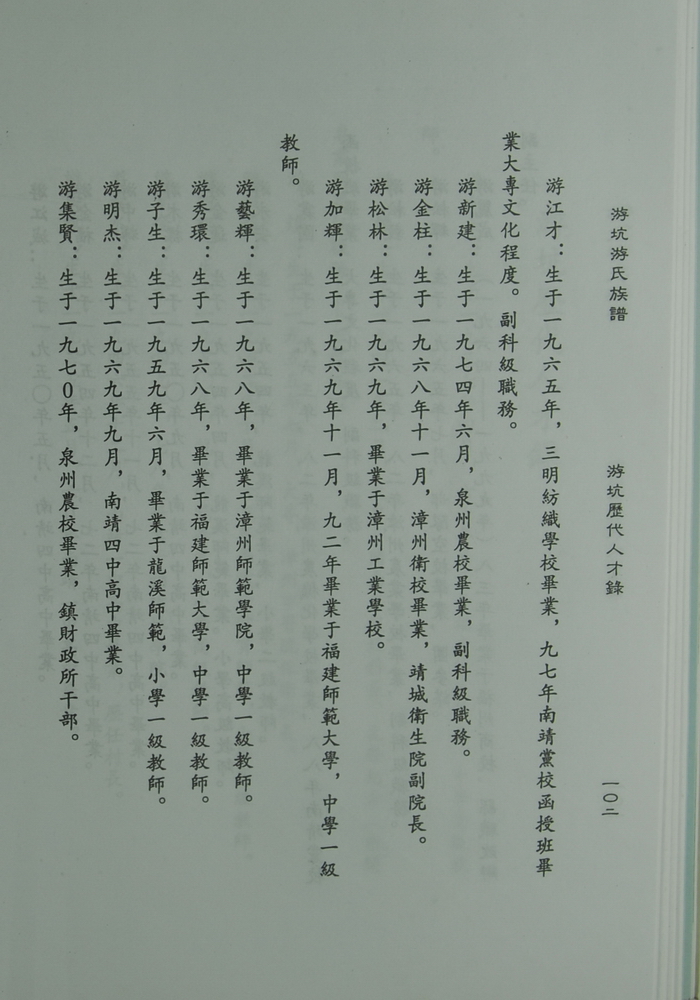 游坑游氏族譜
游坑歷代人才錄
一〇二
游江才：生于一九六五年，三明紡織學校畢業，九七年南靖黨校函授班畢
業大專文化程度。副科級職務。
游新建：生于一九七四年六月，泉州農校畢業，副科級職務。
游金柱：生于一九六八年十一月，漳州衛校畢業，靖城衛生院副院長。
游松林：生于一九六九年，畢業于漳州工業學校。
游加輝：生于一九六九年十一月，九二年畢業于福建師範大學，中學一級
教師。
游藝輝：生于一九六八年，畢業于漳州師範學院，中學一級教師。
游秀環：生于一九六八年，畢業于福建師範大學，中學一級教師。
游子生：生于一九五九年六月，畢業于龍溪師範，小學一級教師。
游明杰：生于一九六九年九月，南靖四中高中畢業。
游集賢：生于一九七0年，泉州農校畢業，鎮財政所干部。